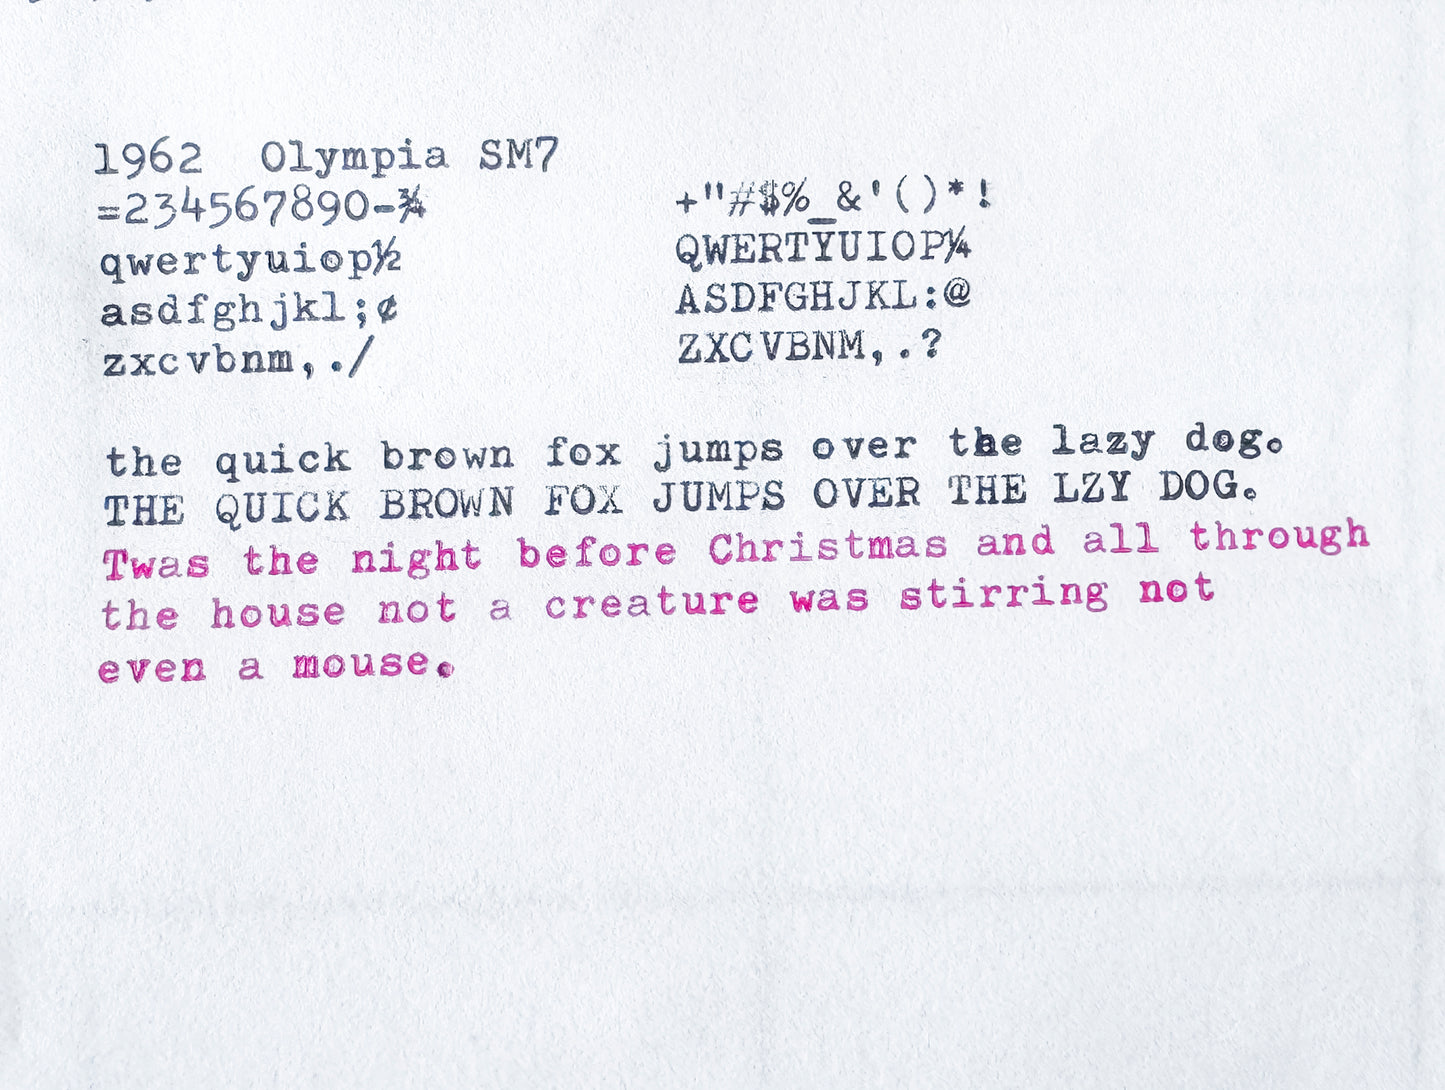 1962  Olympia SM7
=234567890-¾    +"#$%_&'()*!
qwertyuiop½    QWERTYUIOP¼
asdfghjkl;¢    ASDFGHJKL:@
zxcvbnm,./    ZXCVBNM,.?
the quick brown fox jumps over the lazy dog.
THE QUICK BROWN FOX JUMPS OVER THE LZY DOG.
Twas the night before Christmas and all through
the house not a creature was stirring not
even a mouse.